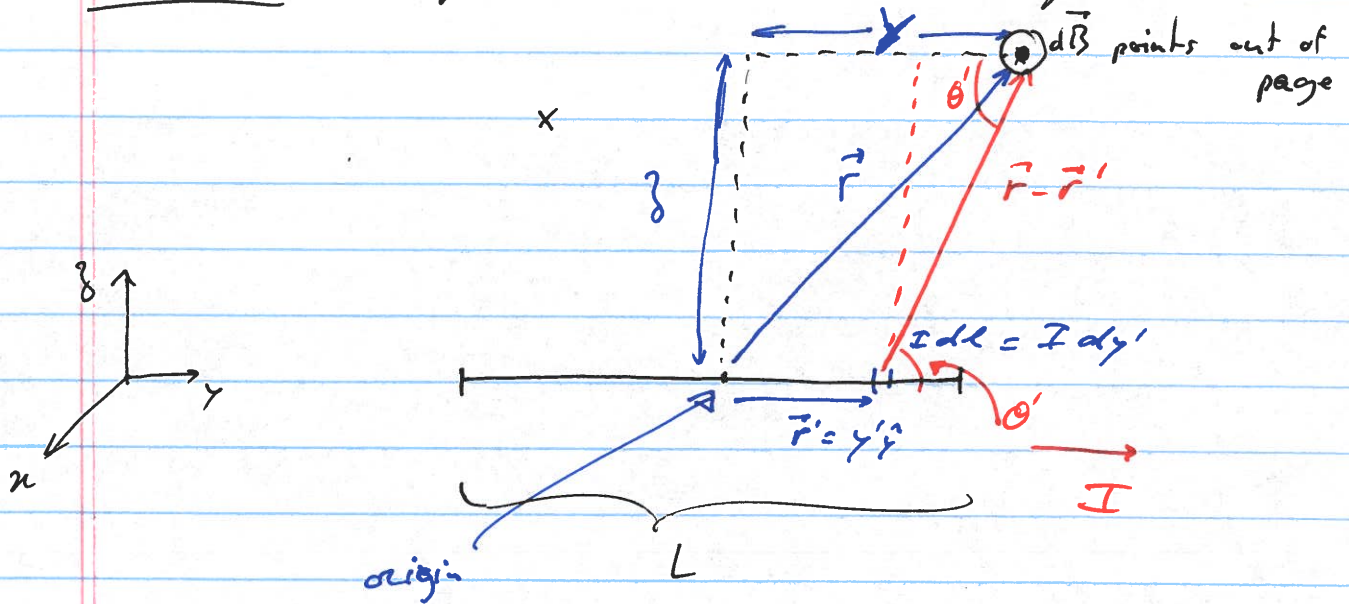 y
dB⃗ points out of
page
θ'
x
z
r⃗
r⃗ - r⃗'
z
y
x
I dl = I dy'
r⃗' = y'ŷ
θ'
I
origin
L